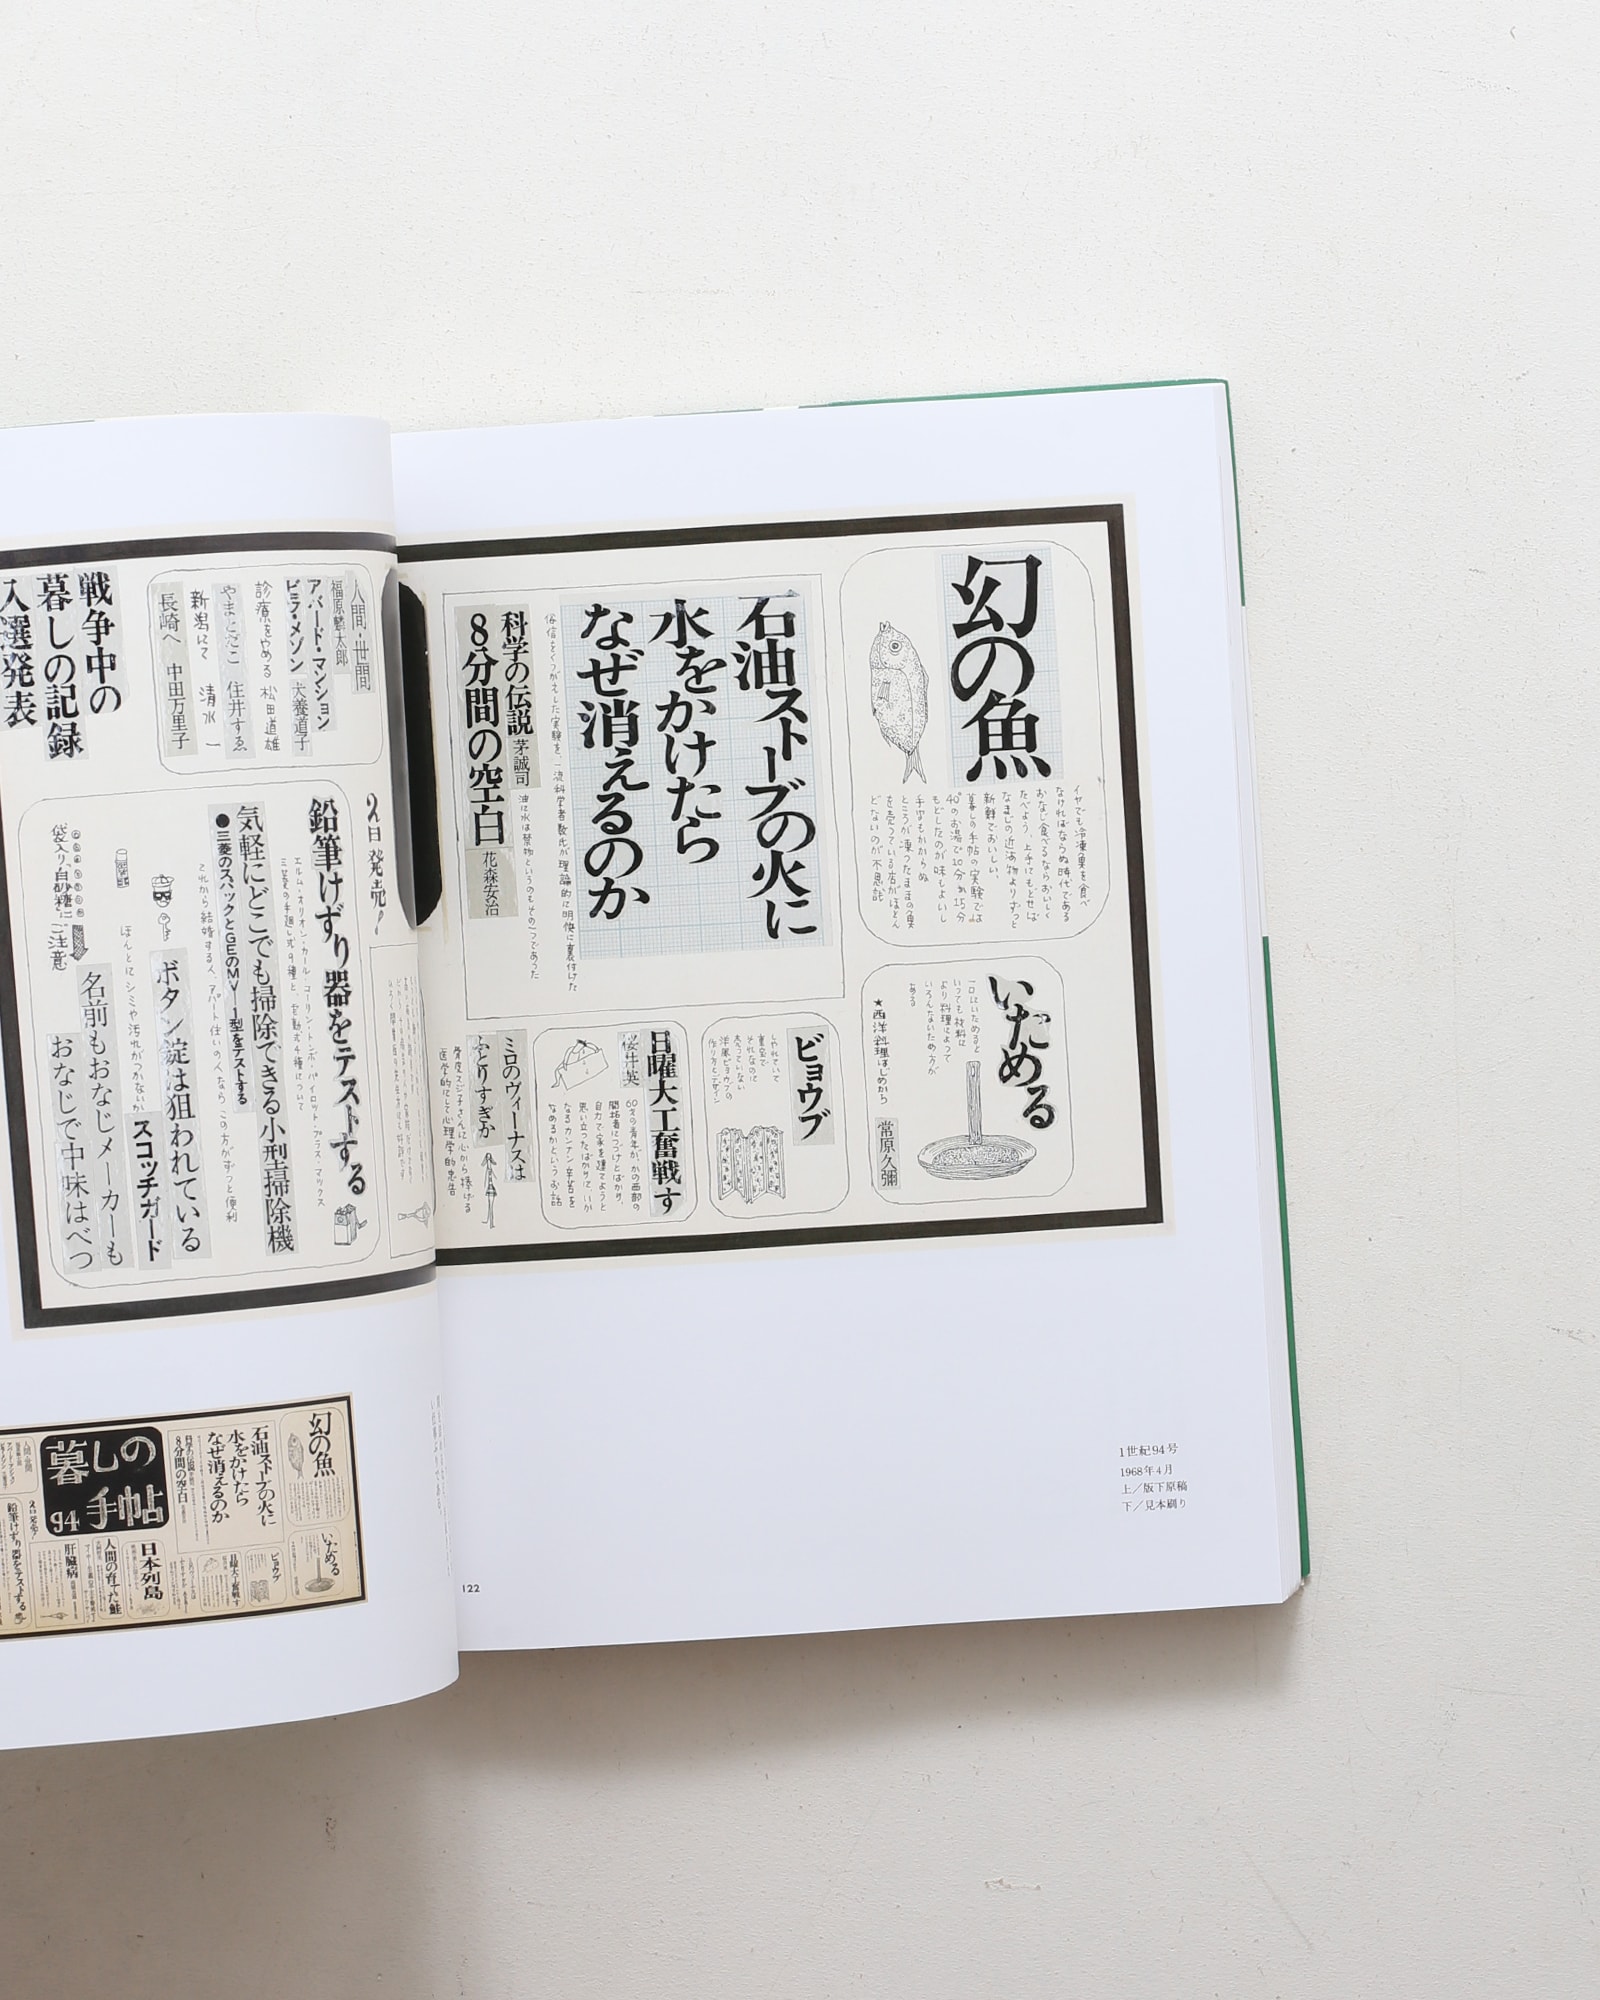 幻の魚
イヤでも冷凍魚を食べ
なければならぬ時代である
おなじ食べるならおいしく
たべよう、上手にもどせば
なまじの近海物よりずっと
新鮮でおいしい、
暮しの手帖の実験では
40°のお湯で10分か15分
もどしたのが味もよいし
手間もかからぬ
ところが凍ったままの魚
を売っている店がほとん
どないのが不思議
いためる
一口にいためると
いっても材料に
より料理によって
いろんないため方が
ある
★西洋料理はじめから
常原久彌
石油ストーブの火に
水をかけたら
なぜ消えるのか
俗信をくつがえした実験を、一流科学者数氏が理論的に明快に裏付けた
科学の伝説 茅誠司
油に水は禁物というのもその一つであった
8分間の空白 花森安治
ビョウブ
しゃれていて
重宝で
それなのに
売っていない
洋風ビョウブの
作り方とデザイン
日曜大工奮戦す
桜井英
60才の青年が、かの西部の
開拓者につづけとばかり、
自力で家を建てようと
思い立ったばかりに、いか
なるカンナン辛苦を
なめるかというお話
ミロのヴィーナスは
ふとりすぎか
骨皮スジ子さんに心から捧げる
医学的にして心理学的忠告
人間・世間
福原麟太郎
アパード・マンション
ビラ・メゾン 犬養道子
診療をやめる 松田道雄
やまとだこ 住井すゑ
新潟にて 清水一
長崎へ 中田万里子
戦争中の
暮しの記録
入選発表
2日発売!
鉛筆けずり器をテストする
エルム・オリオン・カール・コーリン・トンボ・パイロット・プラス・マックス
三菱の手廻し式9種と、電動式4種について
気軽にどこでも掃除できる小型掃除機
●三菱のスパックとGEのMV—1型をテストする
これから結婚する人、アパート住いの人なら この方がずっと便利
ボタン錠は狙われている
ほんとにシミや汚れがつかないか スコッチガード
名前もおなじメーカーも
おなじで中味はべつ
袋入り白砂糖にご注意
幻の魚
いためる
石油ストーブの火に
水をかけたら
なぜ消えるのか
科学の伝説
8分間の空白
ビョウブ
日曜大工奮戦す
暮しの
手帖
94
日本列島
人間の育てた鮭
肝臓病
2日発売!
鉛筆けずり器をテストする
1世紀94号
1968年4月
上／版下原稿
下／見本刷り
122